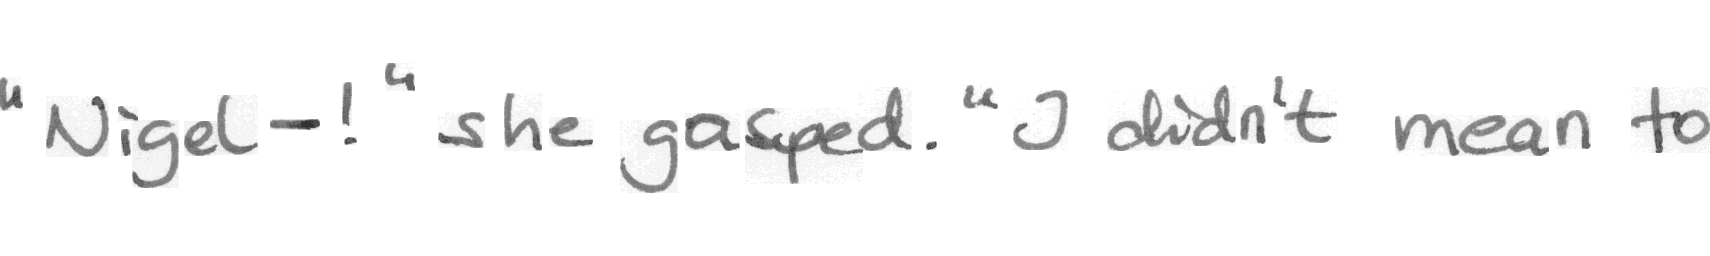 "Nigel-!" she gasped. "I didn't mean to